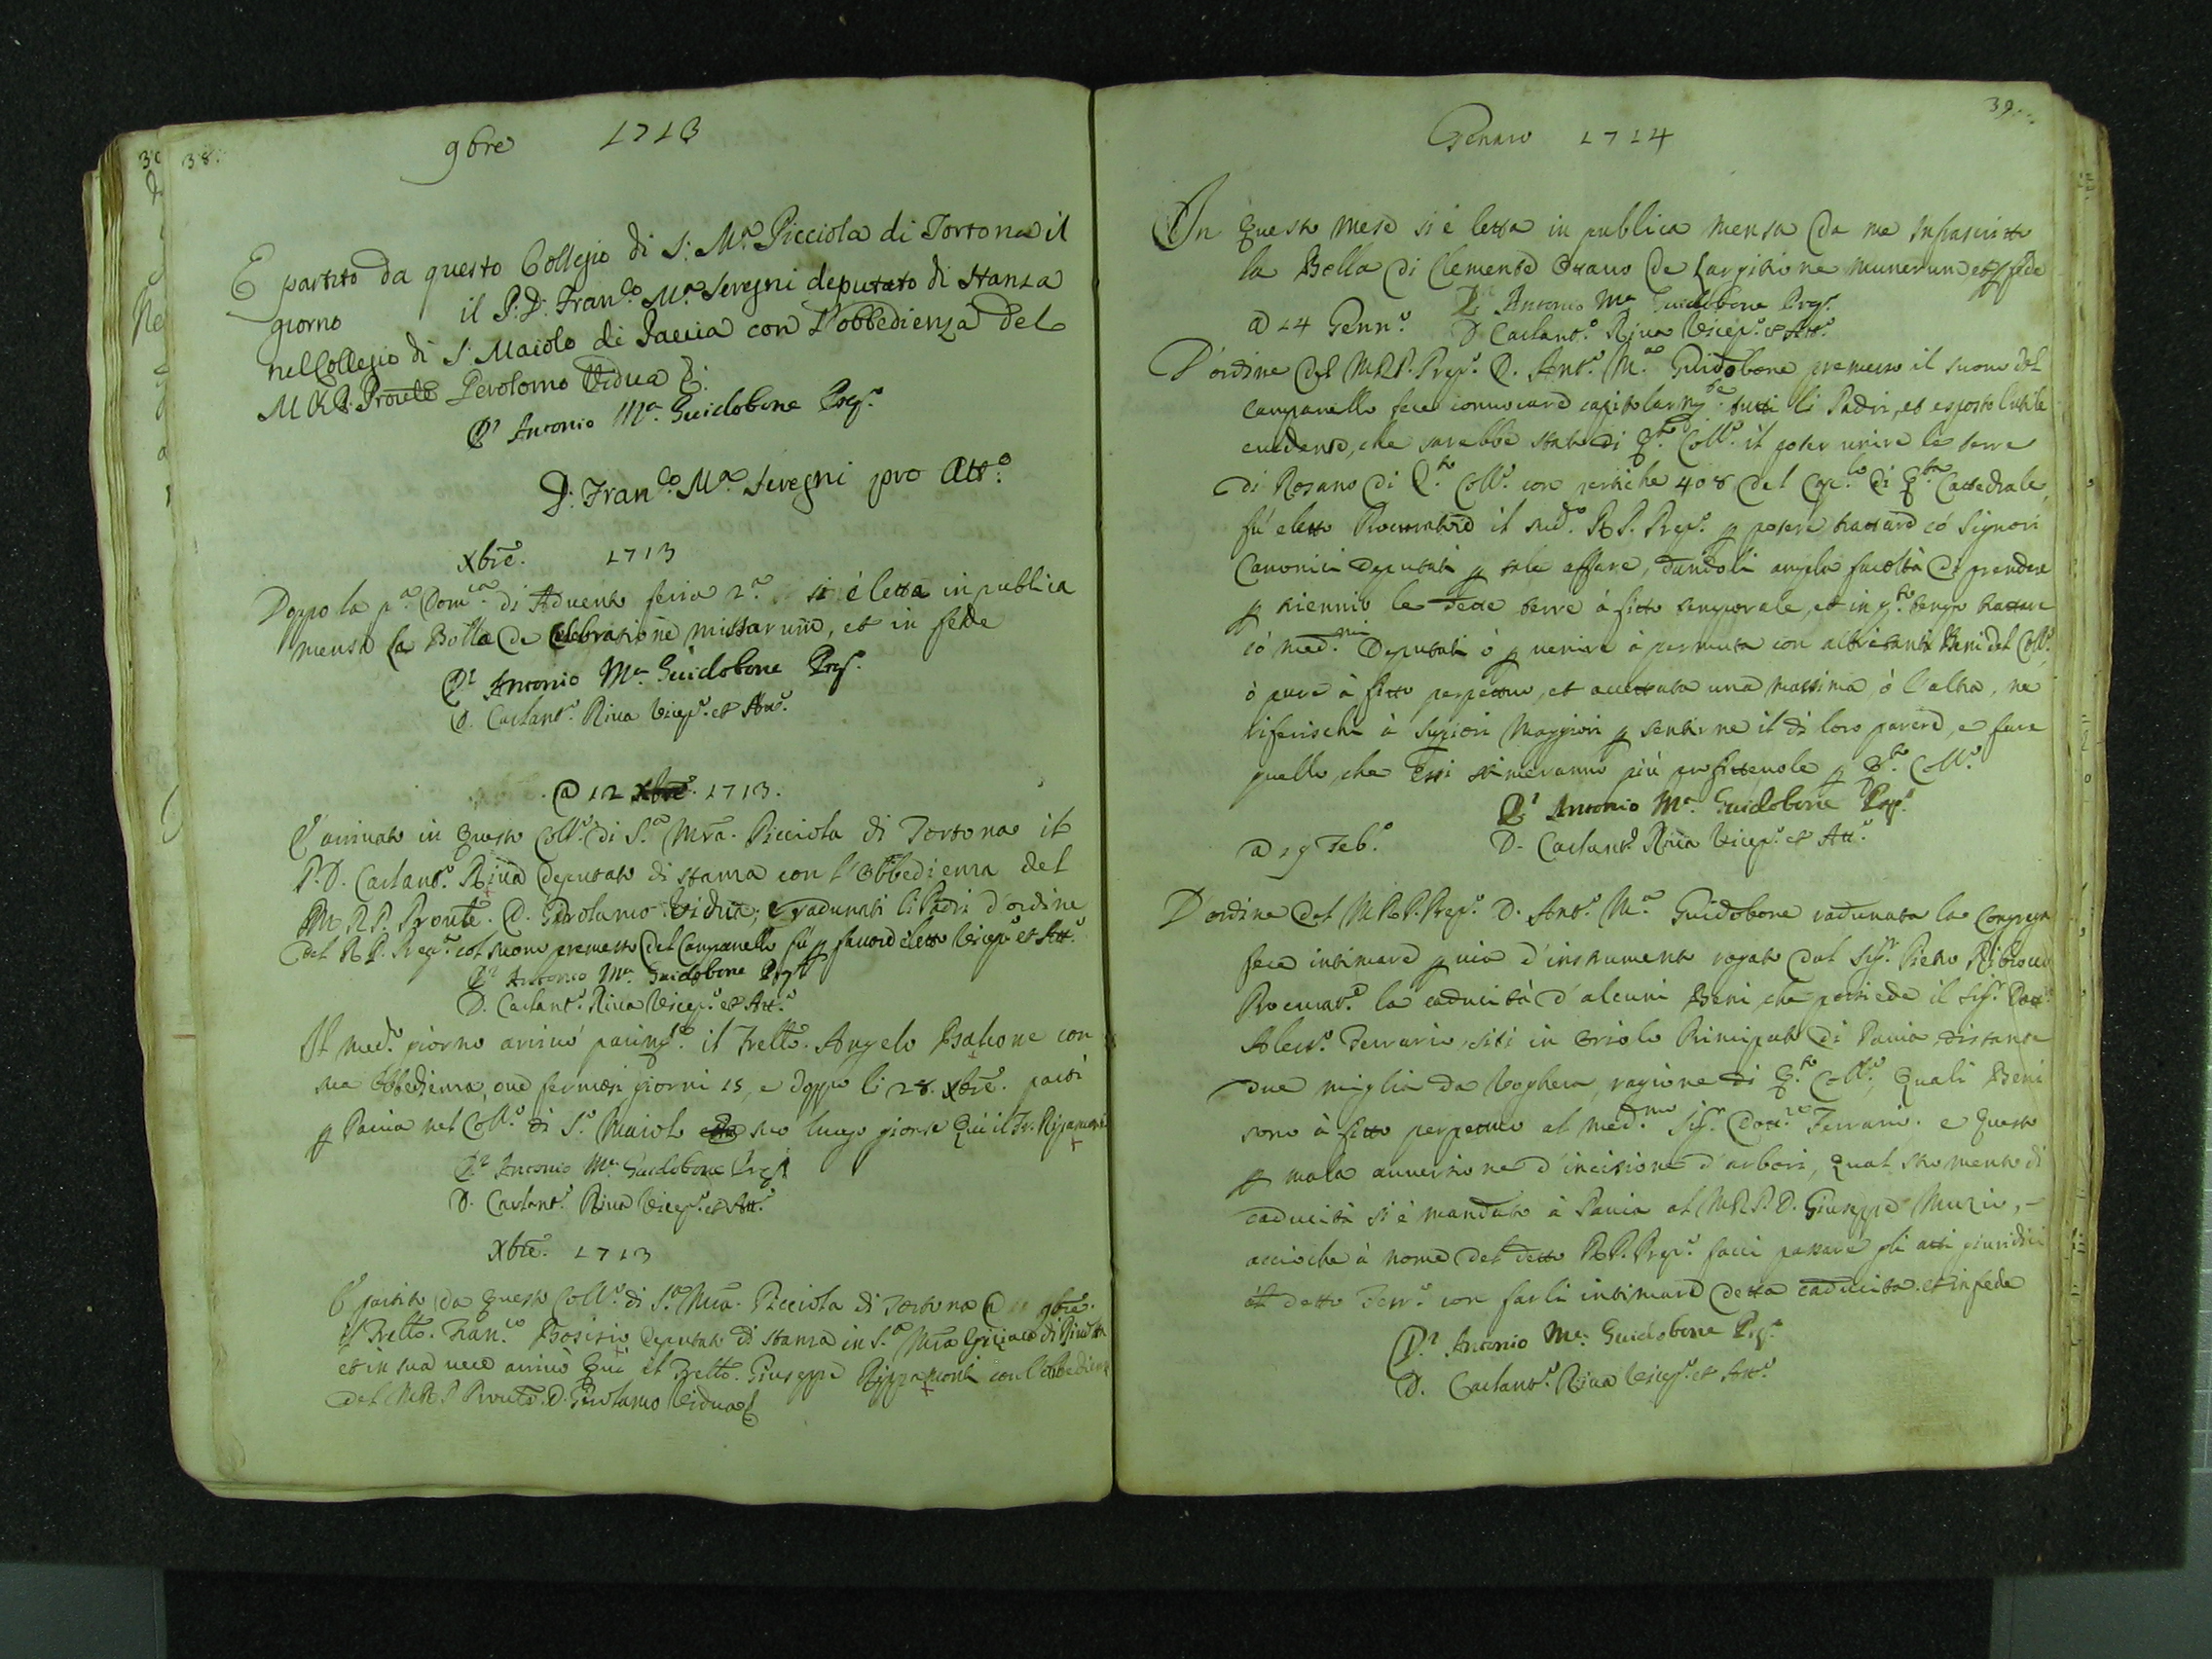 38.
9bre 1713
E partito da questo Collegio di S. Mª Picciola di Tortona il
giorno il P. D. Franco Mª Seregni deputato di stanza
nel Collegio di S. Maiolo di Pavia con l'obbedienza del
M R P. Pronle Gerolomo Vidua
D. Antonio Mª Guidobone Pregº
D. Franco Mª Seregni pro Attº
xbre. 1713
Doppo la pª Domca di Advento feria 2ª si è letta in publica
mensa la Bolla de Celebratione missarum, et in fede
D. Antonio Mª Guidobone Prepº
D. Carlantº Riva Vicepº et Attº
a 12 xbre. 1713.
E' arrivato in questo Collº di Sª Mra. Picciola di Tortona il
P. D. Carlantº Riva deputato di stanza con l'obbedienza del
M R P. Pronle. D. Gerolamo Vidua; e radunati li Padri d'ordine
del R P. Prepº col suono premesso del Campanello fù eletto Vicepº et Attº
D. Antonio Mª Guidobone Prepº
D. Carlantº Riva Vicepº et Attº
Il medº giorno arrivò il Frello. Angelo con
sua obbedienza, ove fermosi giorni 15, e doppo li 28. xbre. partì
p Pavia nel Collº di Sº Maiolo suo luogo gionse qui il Fr. Ripamonti
D. Antonio Mª Guidobone Prepº
D. Carlantº Riva Vicepº et Attº
xbre. 1713
E' partito da questo Collº di Sª Mra. Picciola di Tortona 9bre.
il Frello. Franco Bosisio deputato di stanza in Sª Mra
et in sua vece arrivò qui il Frello. Giuseppe Rippamonti con l'obbedienza
del M R P Pronle. D. Gerolamo Vidua
39.
Genaro 1714
In questo mese si è letta in publica mensa da me infrascritto
la Bolla di Clemente Ottavo de Largitione munerum, et p fede
D. Antonio Mª Guidobone Prepº
a 14 Gennº D. Carlantº Riva Vicepº et Attº
D'ordine del M R P. Prepº D. Antº Mª Guidobone premesso il suono del
campanello fece convocare tutti li Padri, et esposto l'utile
evidente, che sarebbe stato di qto Collº il poter unire le terre
di Rosano di qto Collº con pertiche 408 del Caplo di qta Cattedrale,
fù eletto Procuratore il medº R P. Prepº p potere trattare có Signori
Canonici Deputati p tale affare, dandoli ampla facoltà di prendere
p triennio le dette terre à fitto temporale, et in qto tempo trattare
có medmi Deputati ò p venire à permuta con altretanti Beni del Collº
ò pure à fitto perpetuo, et accettata una massima, ò l'altra, ne
riferischi à Superiori Maggiori p sentirne il di loro parere, e fare
quello, che Essi stimeranno più profittevole p qto Collº
D. Antonio Mª Guidobone Prepº
a 19 Febº D. Carlantº Riva Vicepº et Attº
D'ordine del M R P. Prepº D. Antº Mª Guidobone radunata la Congregne
fece intimare p via d'instrumento rogato dal Sigr. Pietro Ribrocco
Procurare la caducità d'alcuni Beni, che possiede il Sigr. Dottr
Alessº Ferrario, siti in Oriolo Principato di Pavia distante
due miglia da Voghera, ragione di qto Collº, quali Beni
sono à fitto perpetuo al medmo Sigr. Dottre Ferrario. e questo
p mala d'incisione d'arbori, qual stromento di
caducità si è mandato à Pavia al M R P. D. Giuseppe Muzio,
accioche à nome del detto R P. Prepº facci passare gli atti giuridici
detto Ferrº con farli intimare detta caducità. et in fede
D. Antonio Mª Guidobone Prepº
D. Carlantº Riva Vicepº et Attº